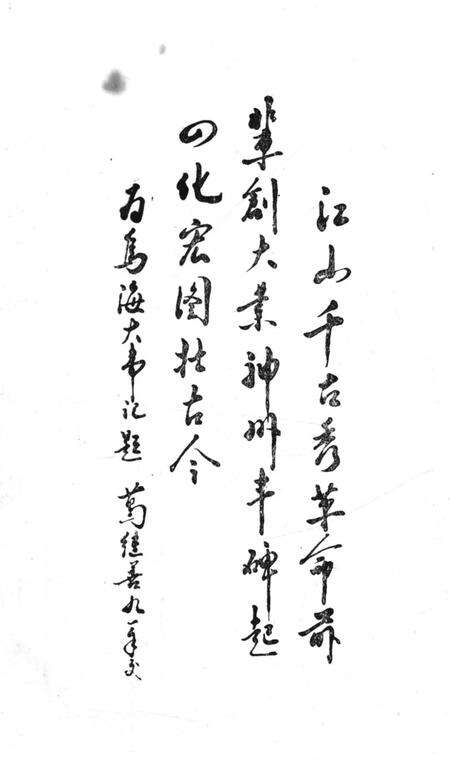 江山千古秀革命前
辈创大業神州丰碑起
四化宏图壮古今
为乌海大事记题 葛继善九一年文